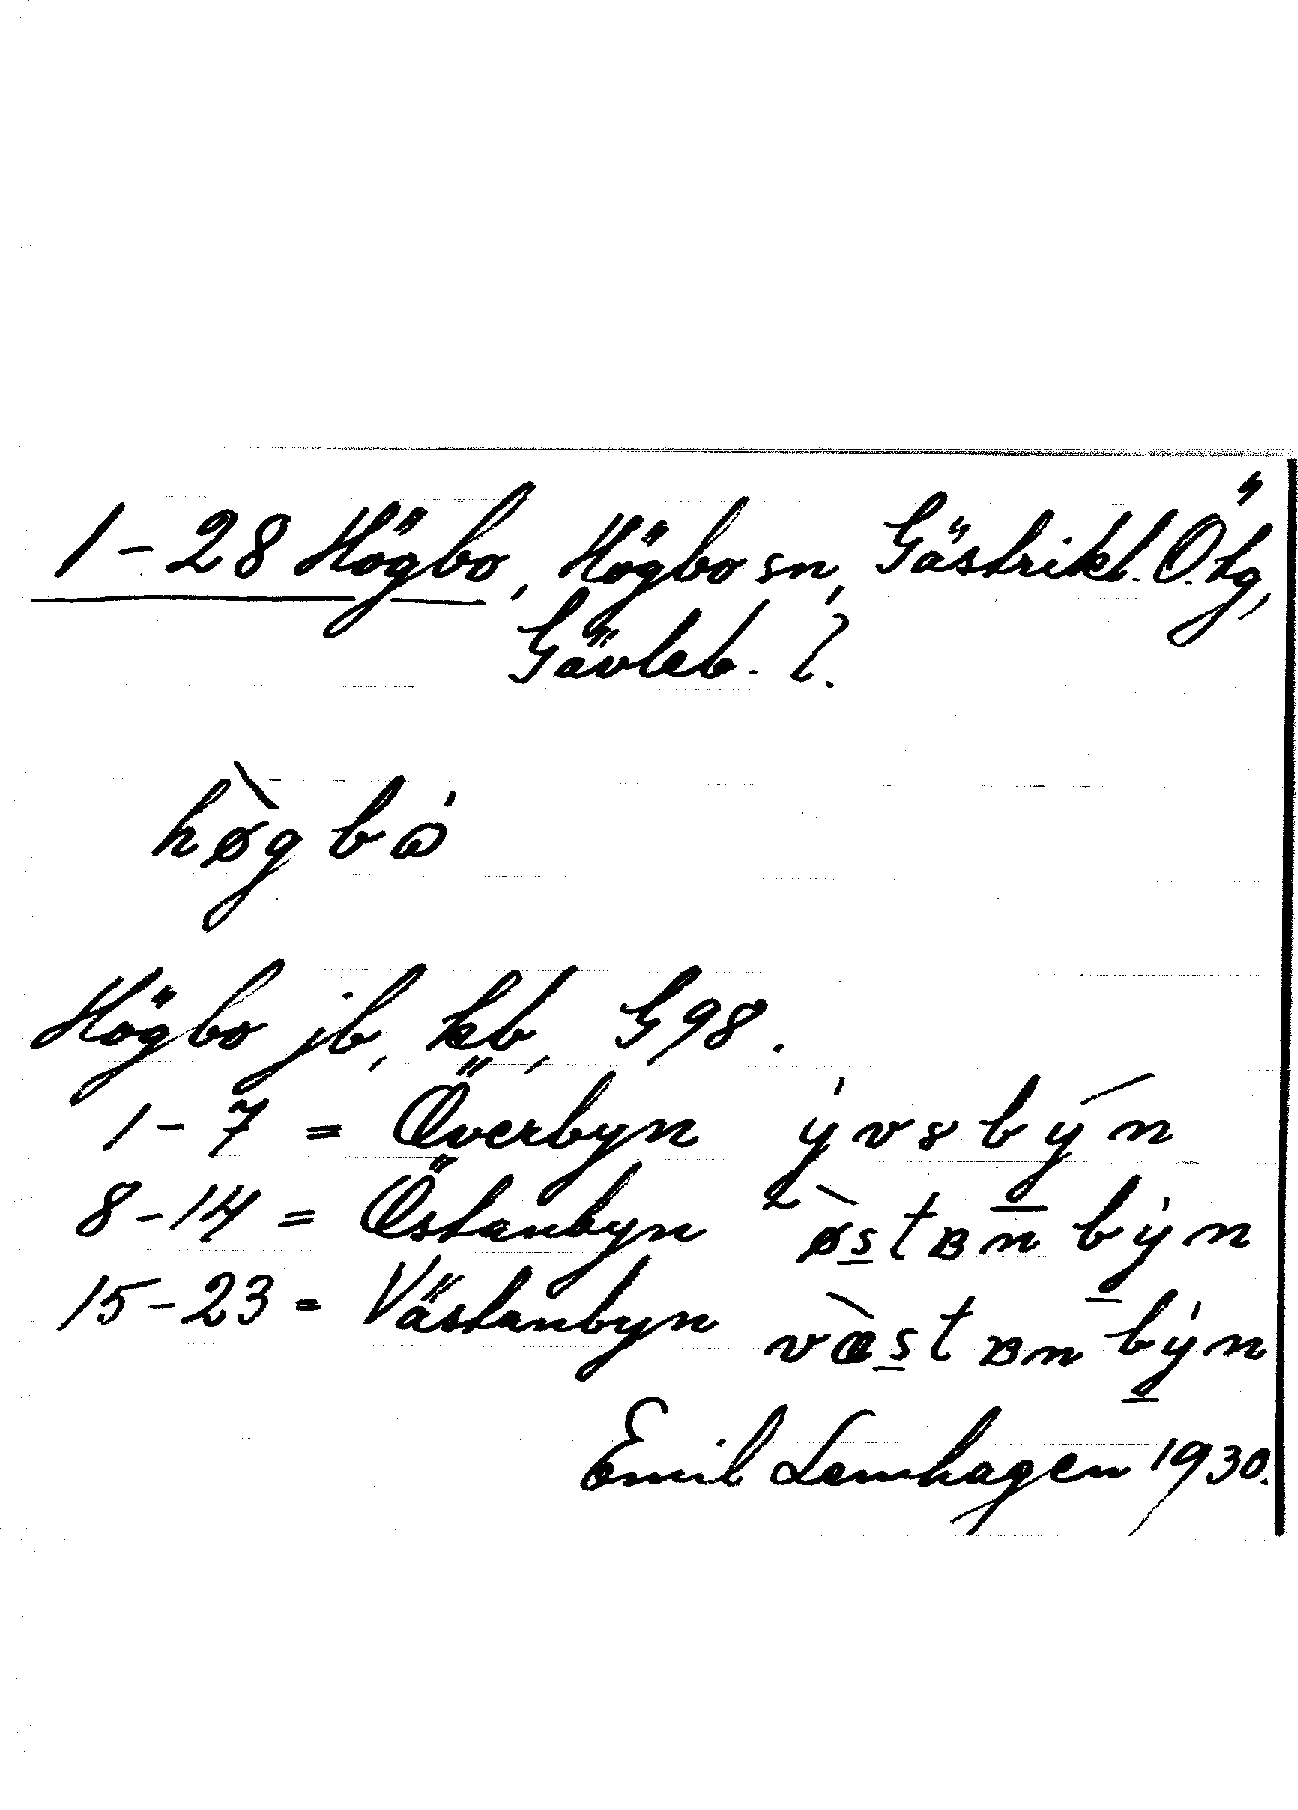 1-28 Högbo, Högbo sn, Gästrikl. Ö. tg,
Gävleb. l.
hø̀gbó
Högbo jb, kb, G98.
1-7 = Överbyn ývsbýn
8-14 = Östanbyn østʙn býn
15-23 = Västanbyn væstʙn býn
Emil Lemhagen 1930.